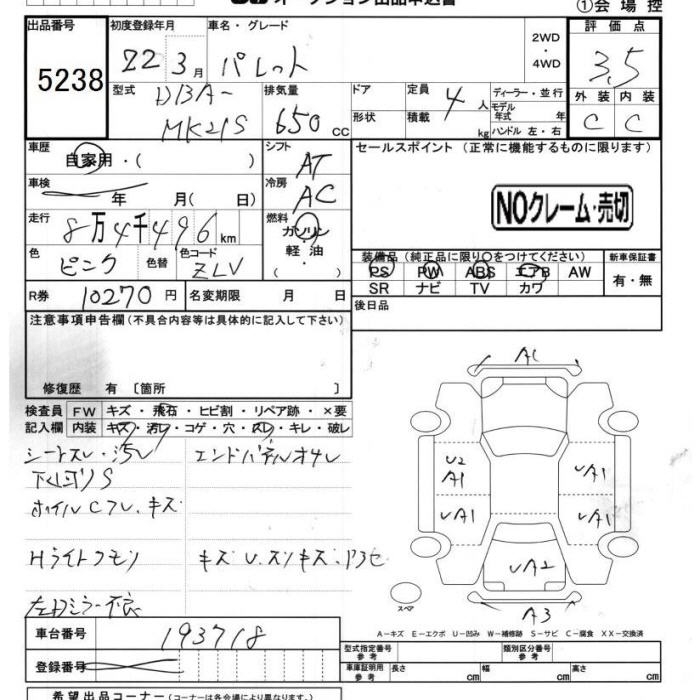 オークション出品申込書
①会 場 控
出品番号
5238
初度登録年月
22 3月
車名・グレード
パレット
2WD
・
4WD
評 価 点
3.5
型式
DBA-
MK21S
排気量
650 cc
ドア
形状
定員
4人
積載
kg
ディーラー・並行
モデル
年式 年
ハンドル 左・右
外 装
内 装
C
C
車歴
自家用・( )
シフト
AT
セールスポイント (正常に機能するものに限ります)
車検
年 月( 日)
冷房
AC
NOクレーム・売切
走行
8万4千496km
燃料
ガソリン
・
軽 油
・
( )
色
ピンク
色替
色コード
ZLV
装備品(純正品に限り○をつけてください)
PS PW ABS エアB AW
SR ナビ TV カワ
新車保証書
有・無
R券
10270円
名変期限 月 日
後日品
注意事項申告欄(不具合内容等は具体的に記入して下さい)
修復歴 有 〔箇所 〕
検査員
記入欄
FW キズ・飛石・ヒビ割・リペア跡・×要
内装 キズ・汚レ・コゲ・穴・スレ・キレ・破レ
シートスレ・汚レ
エンドパネルオサレ
下回りS
ホイルCフレ、キズ
Hライトクモリ
キズU.スリキズ.
A1
U2
A1
UA1
UA1
UA1
UA2
A3
スペア
A-キズ E-エクボ U-凹み W-補修跡 S-サビ C-腐食 XX-交換済
車台番号
193718
登録番号
型式指定番号
参 考
類別区分番号
参 考
車庫証明用
参 考
長さ cm
幅 cm
高さ cm
希望出品コーナー(コーナーは各会場により異なります。)